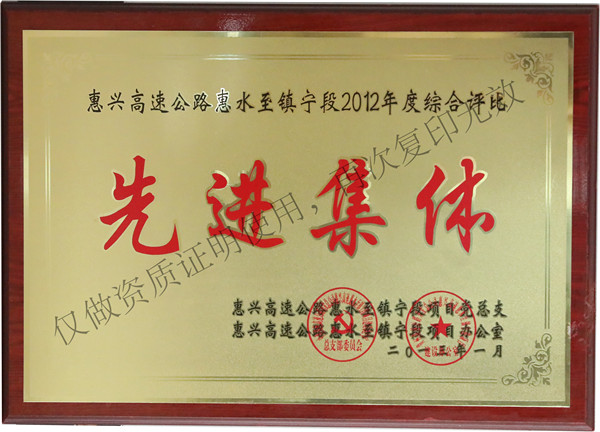 惠兴高速公路惠水至镇宁段2012年度综合评比
先进集体
惠兴高速公路惠水至镇宁段项目党总支
惠兴高速公路惠水至镇宁段项目办公室
二〇一三年一月
总支部委员会
仅做资质证明使用，再次复印无效